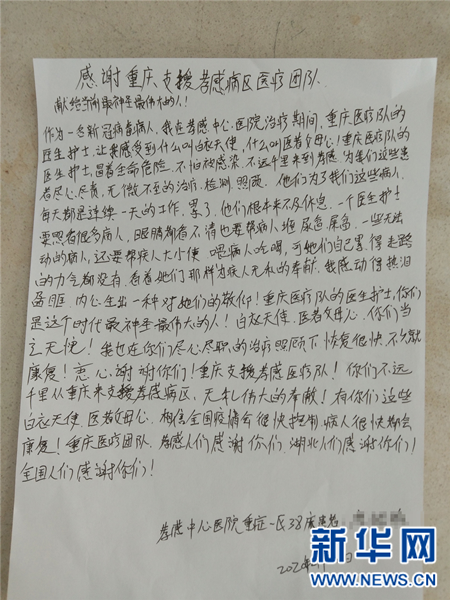 感谢重庆支援孝感病区医疗团队
献给当前最神圣最伟大的人!
作为一名新冠病毒病人,我在孝感中心医院治疗期间,重庆医疗队的
医生护士,让我感受到什么叫白衣天使,什么叫医者父母心!重庆医疗队的
医生护士,冒着生命危险,不怕被感染,不远千里来到孝感,为我们这些患
者尽心尽责,无微不至的治疗,检测,照顾,他们为了我们这些病人,
每天都是连续一天的工作,累了,他们根本来不及休息,一个医生护士
要照看很多病人,眼睛
的病人,还要帮病人大小便,喂病人吃喝,可她们自己累得走路
的力气都没有,看着她们那样为病人无私的奉献,我感动得热泪
盈眶,内心生出一种对她们的敬仰!重庆医疗队的医生护士,你们
是这个时代最神圣最伟大的人!白衣天使,医者父母心,你们当
之无愧!我也在你们尽心尽职的治疗照顾下恢复很快,不久就
康复!衷心谢谢你们!重庆支援孝感医疗队!你们不远
千里从重庆来支援孝感病区,无私伟大的奉献!有你们这些
白衣天使,医者父母心,相信全国疫情会很快控制,病人很快都会
康复!重庆医疗团队,孝感人们感谢你们,湖北人们感谢你们!
全国人们感谢你们!
孝感中心医院重症一区38床患者
新华网
WWW.NEWS.CN